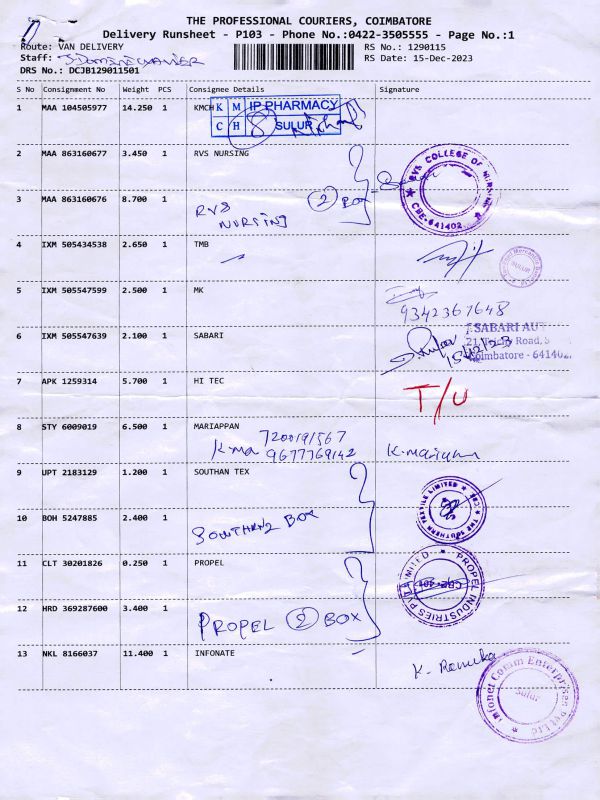 THE PROFESSIONAL COURIERS, COIMBATORE
Delivery Runsheet - P103 - Phone No.:0422-3505555 - Page No.:1
Route: VAN DELIVERY
RS No.: 1290115
Staff:
RS Date: 15-Dec-2023
DRS No.: DCJB129011501
S No Consignment No Weight PCS Consignee Details Signature
1 MAA 104505977 14.250 1 KMCH
K M IP PHARMACY
C H SULUR
2 MAA 863160677 3.450 1 RVS NURSING
RVS COLLEGE OF NURSING
CBE-641402
3 MAA 863160676 8.700 1
RVS NURSING
2 BOX
4 IXM 505434538 2.650 1 TMB
SULUR
5 IXM 505547599 2.500 1 MK
9342367648
6 IXM 505547639 2.100 1 SABARI
15/12/23
SABARI AU
Road, S
Coimbatore - 64140
7 APK 1259314 5.700 1 HI TEC
T/U
8 STY 6009019 6.500 1 MARIAPPAN
7200191567
K.ma 9677769142
9 UPT 2183129 1.200 1 SOUTHAN TEX
THE SOUTHERN TEXTILE LIMITED
10 BOH 5247885 2.400 1
BOX
11 CLT 30201826 0.250 1 PROPEL
PROPEL INDUSTRIES PVT LIMITED
12 HRD 369287600 3.400 1
PROPEL 2 BOX
13 NKL 8166037 11.400 1 INFONATE
K. Renuka
Infonet Comm Enterprises Pvt Ltd
Sulur